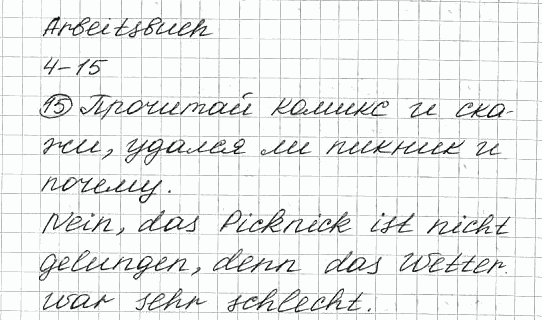 Arbeitsbuch
4-15
15 Прочитай комикс и ска-
жи, удался ли пикник и
почему.
Nein, das Picknick ist nicht
gelungen, denn das Wetter
war sehr schlecht.